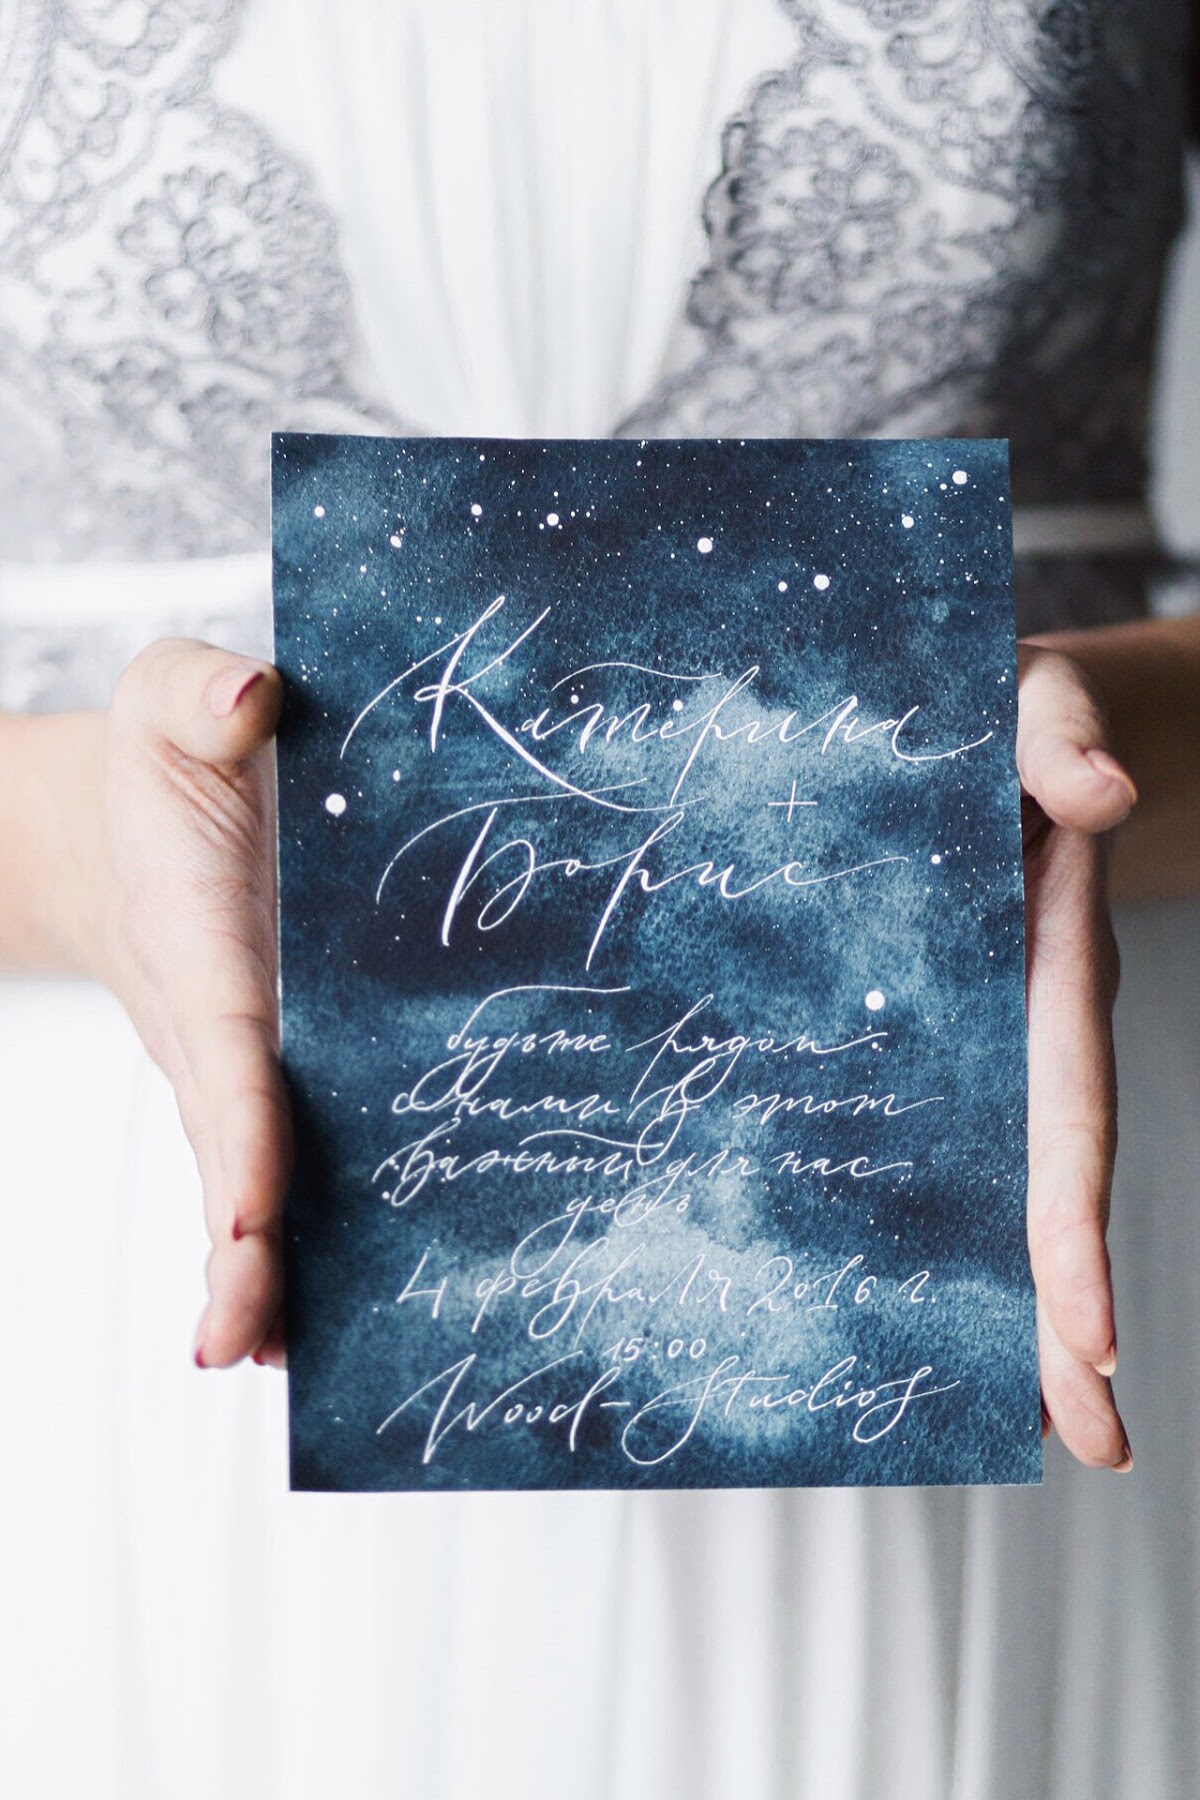 Катерина
+
Борис
будьте рядом
с нами в этом
важный для нас
день
4 февраля 2016 г.
15:00
Wood-Studios